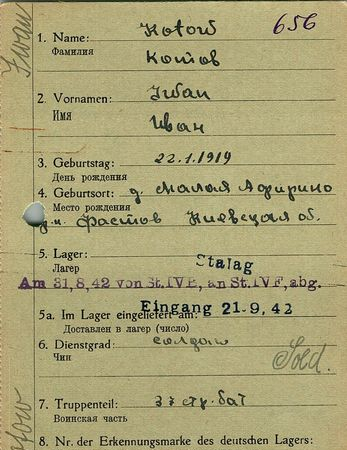 Iwan
656
1. Name: Kotow
Фамилия Котов
2. Vornamen: Iwan
Имя Иван
3. Geburtstag: 22.1.1919
День рождения
4. Geburtsort: д. Малая
Место рождения
Фастов Киевская об.
5. Lager: Stalag
Лагерь
Am 31.8.42 von St.IVB, an St.IVF, abg.
Eingang 21.9.42
5a. Im Lager eingeliefert am:
Доставлен в лагерь (число)
6. Dienstgrad: солдат
Чин Sold.
7. Truppenteil: 37 стр. бат
Воинская часть
8. Nr. der Erkennungsmarke des deutschen Lagers: